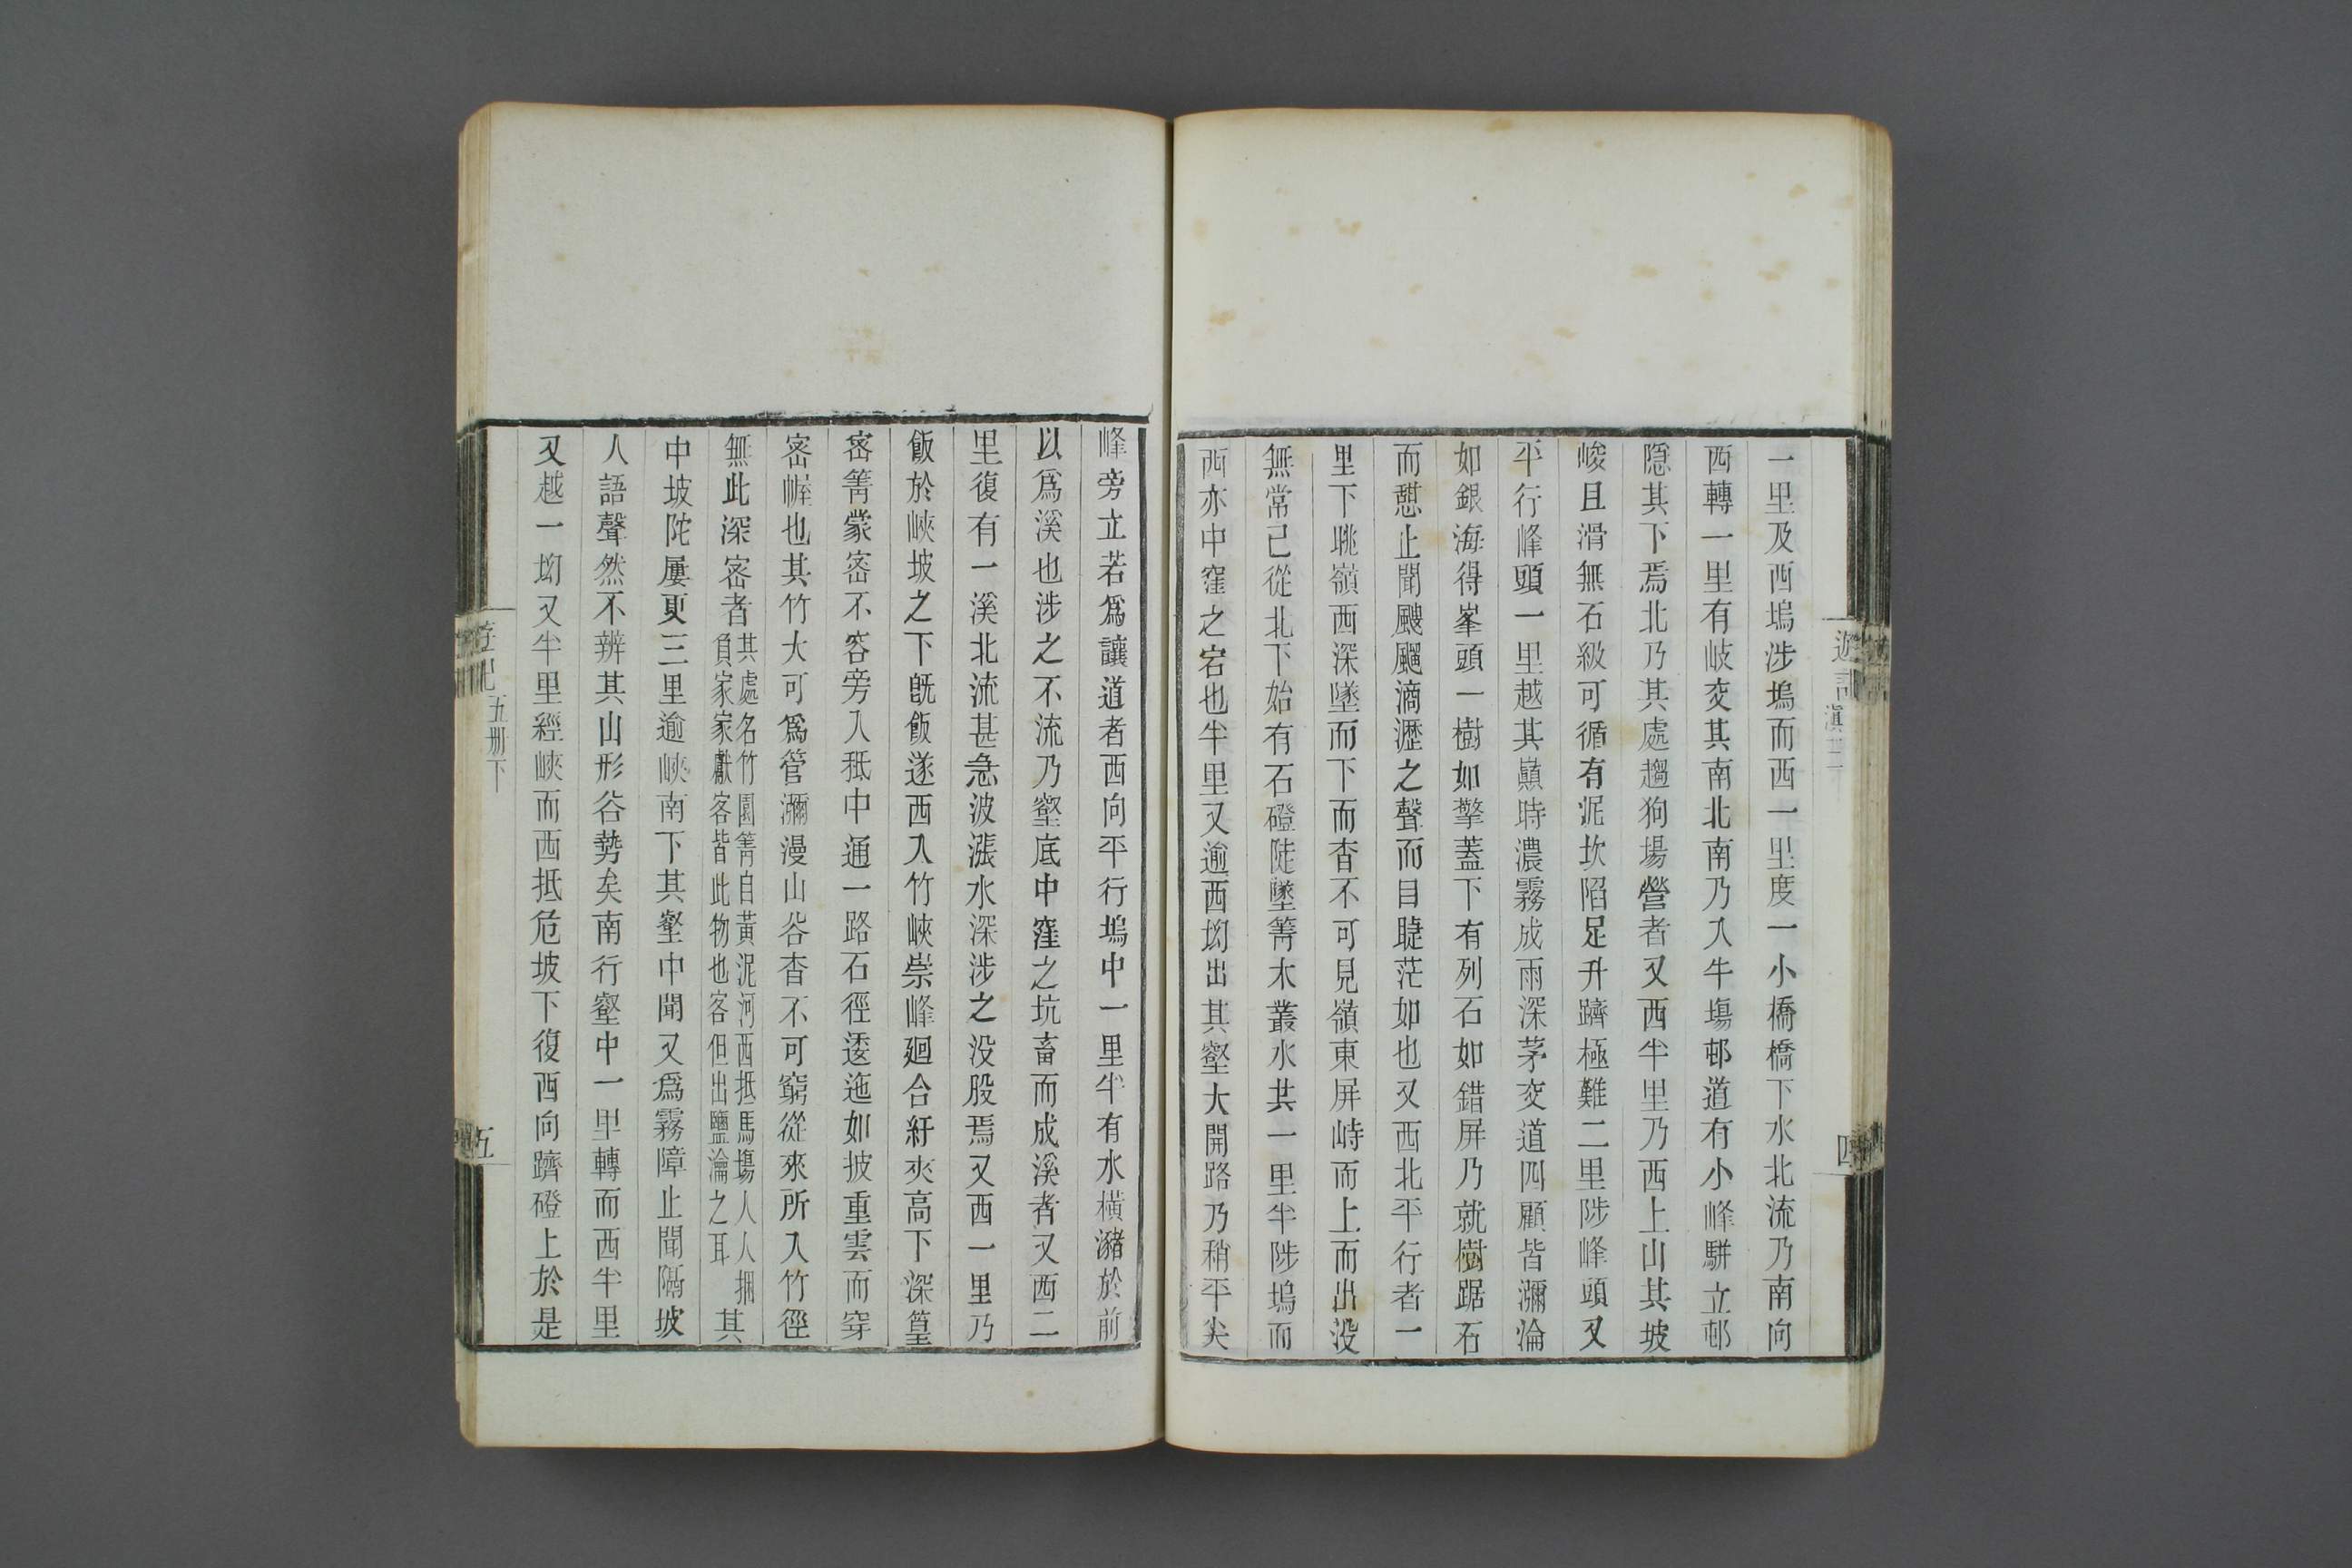 一里及西塢涉塢而西一里度一小橋橋下水北流乃南向
西轉一里有岐交其南北南乃入牛塲邨道有小峰駢立邨
隱其下焉北乃其處趨狗場營者又西半里乃西上山其坡
峻且滑無石級可循有泥坎陷足升躋極難二里陟峰頭又
平行峰頭一里越其巔時濃霧成雨深茅交道四顧皆瀰淪
如銀海得峯頭一樹如擎蓋下有列石如錯屏乃就樹踞石
而憇止聞颼颼滴瀝之聲而目睫茫如也又西北平行者一
里下眺嶺西深墜而下而杳不可見嶺東屏峙而上而出没
無常已從北下始有石磴陡墬箐木叢水共一里半陟塢而
西亦中窪之宕也半里又逾西坳出其壑大開路乃稍平尖
遊記
滇
四
峰旁立若爲讓道者西向平行塢中一里半有水橫瀦於前
以爲溪也涉之不流乃壑底中窪之坑畜而成溪者又西二
里復有一溪北流甚急波漲水深涉之没股焉又西一里乃
飯於峽坡之下旣飯遂西入竹峽崇峰廻合紆夾高下深篁
密箐蒙密不容旁入秖中通一路石徑逶迤如披重雲而穿
密幄也其竹大可爲管瀰漫山谷杳不可窮從來所入竹徑
無此深密者其處名竹園箐自黃泥河西抵馬塲人人捆
負家家獻客皆此物也客但出鹽瀹之耳其
中坡陀屢更三里逾峽南下其壑中聞又爲霧障止聞隔坡
人語聲然不辨其山形谷勢矣南行壑中一里轉而西半里
又越一坳又半里經峽而西抵危坡下復西向躋磴上於是
五册下
五